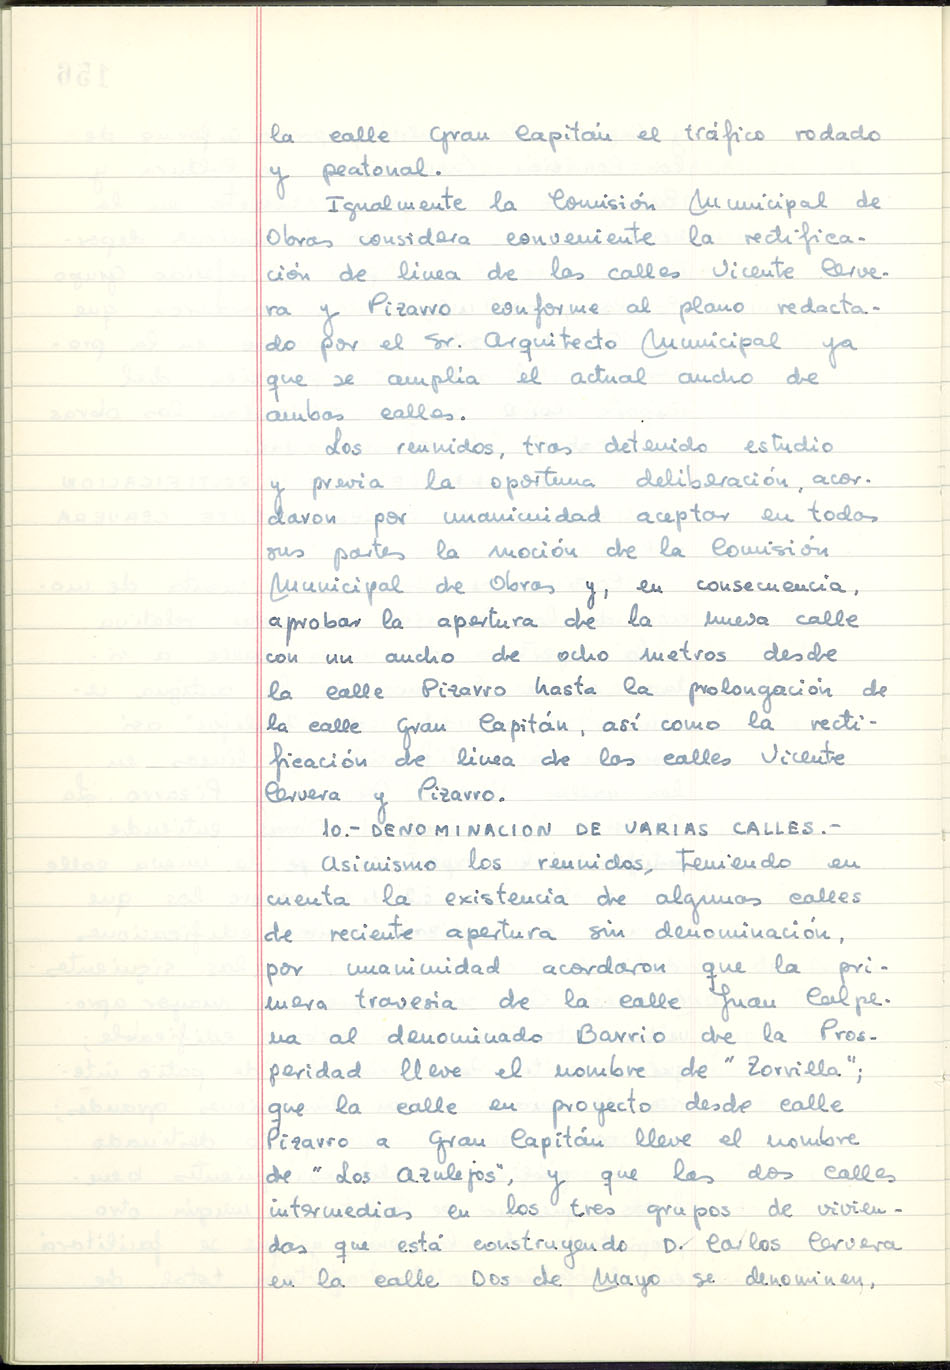 la calle Gran Capitán el tráfico rodado
y peatonal.
Igualmente la Comisión Municipal de
Obras considera conveniente la rectifica-
ción de línea de las calles Vicente Cerve-
ra y Pizarro conforme al plano redacta-
do por el Sr. Arquitecto Municipal ya
que se amplía el actual ancho de
ambas calles.
Los reunidos, tras detenido estudio
y previa la oportuna deliberación, acor-
daron por unanimidad aceptar en todas
sus partes la moción de la Comisión
Municipal de Obras y, en consecuencia,
aprobar la apertura de la nueva calle
con un ancho de ocho metros desde
la calle Pizarro hasta la prolongación de
la calle Gran Capitán, así como la recti-
ficación de línea de las calles Vicente
Cervera y Pizarro.
10.- DENOMINACION DE VARIAS CALLES.-
Asimismo los reunidos, teniendo en
cuenta la existencia de algunas calles
de reciente apertura sin denominación,
por unanimidad acordaron que la pri-
mera travesía de la calle Juan Calpe-
na al denominado Barrio de la Pros-
peridad lleve el nombre de "Zorrilla";
que la calle en proyecto desde calle
Pizarro a Gran Capitán lleve el nombre
de "Los Azulejos", y que las dos calles
intermedias en los tres grupos de vivien-
das que está construyendo D. Carlos Cervera
en la calle Dos de Mayo se denominen,